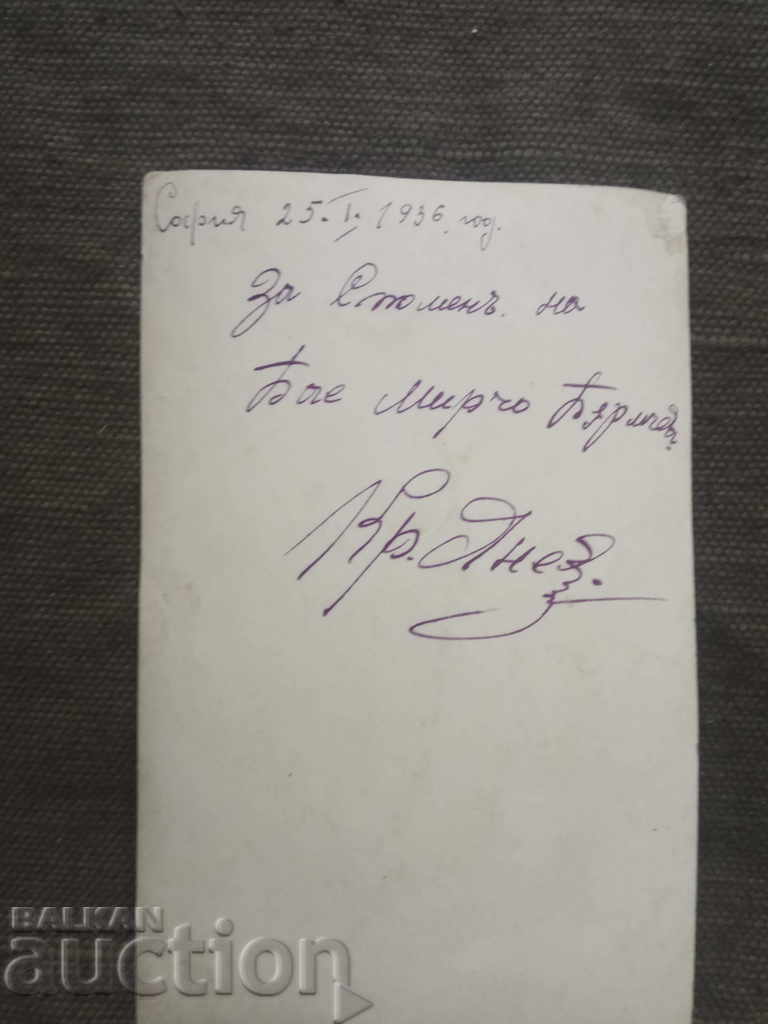 София 25.I.1936 год.
За Споменъ. на
Бае Мирчо
Кр. Янев.
BALKAN
auction